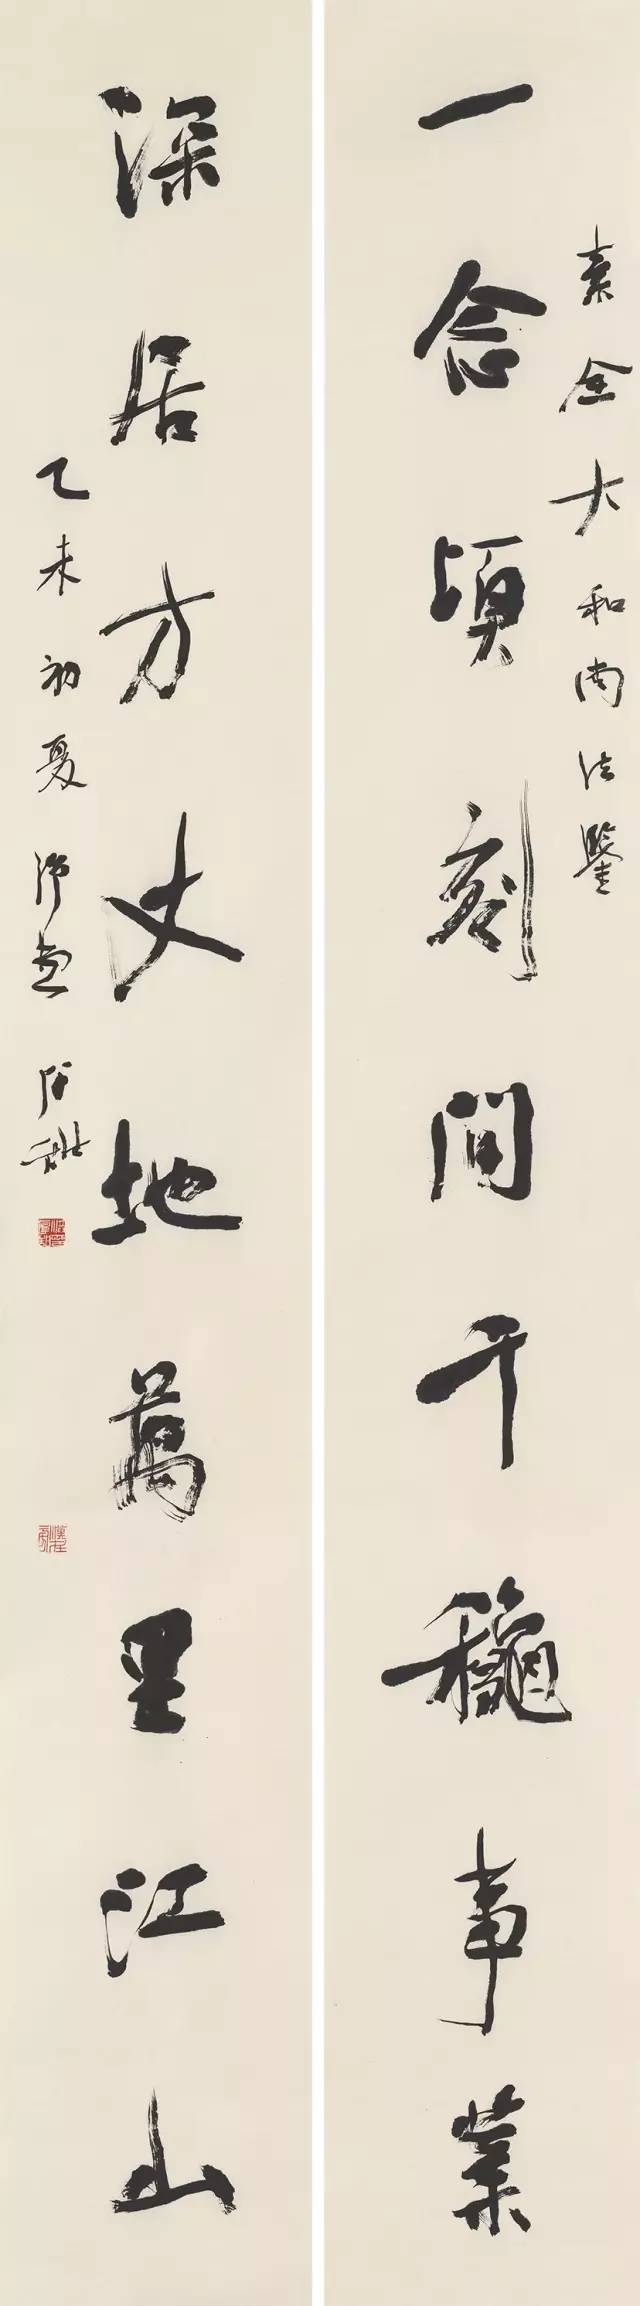 素全大和尚法鑒
一念頃刻間千龝事業
深居方丈地萬里江山
乙未初夏